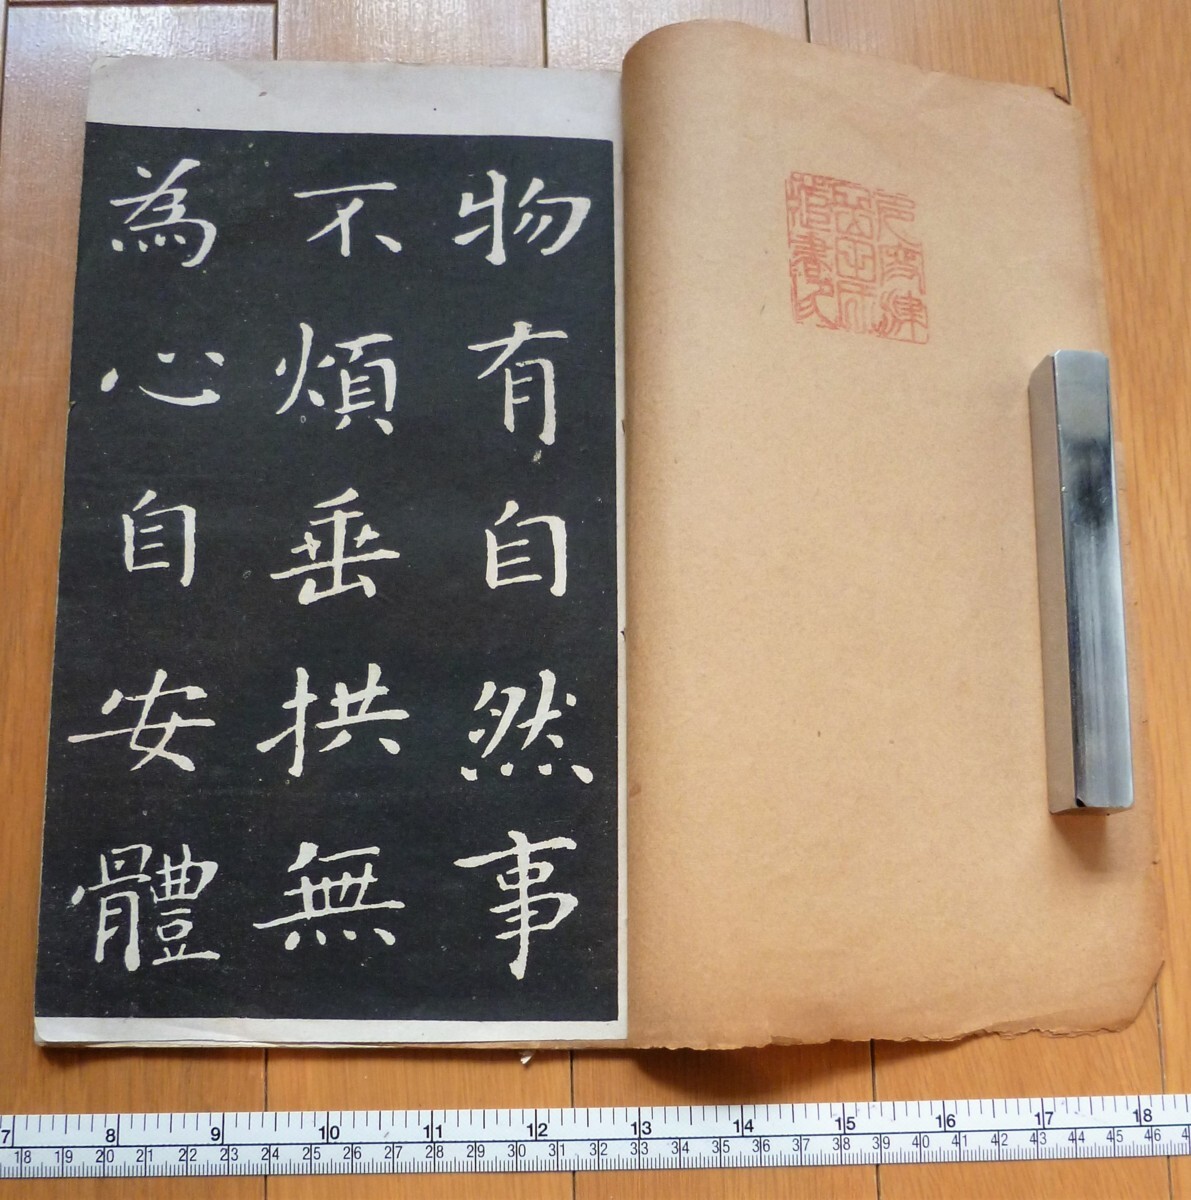 物有自然事
不煩垂拱無
為心自安體
7 8 9 10 11 12 13 14 15 16 17 18
18 19 20 21 22 23 24 25 26 27 28 29 30 31 32 33 34 35 36 37 38 39 40 41 42 43 44 45 46